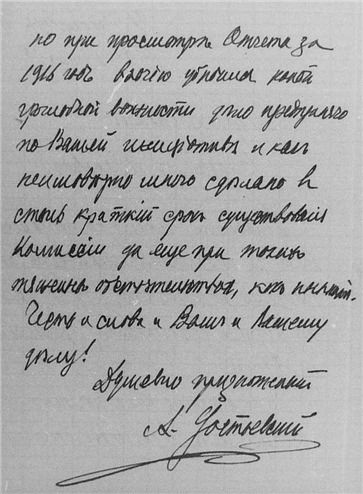 но при просмотрѣ Отчета за
1916 годъ воочію убѣдился какой
громадной важности дѣло предпринято
по Вашей иниціативѣ и какъ
неимовѣрно много сдѣлано въ
столь краткій срокъ существованія
Комиссіи да еще при такихъ
тяжелыхъ обстоятельствахъ, какъ нынѣ.
Честь и слава и Вамъ и Вашему
дѣлу!
Душевно преданный
А.